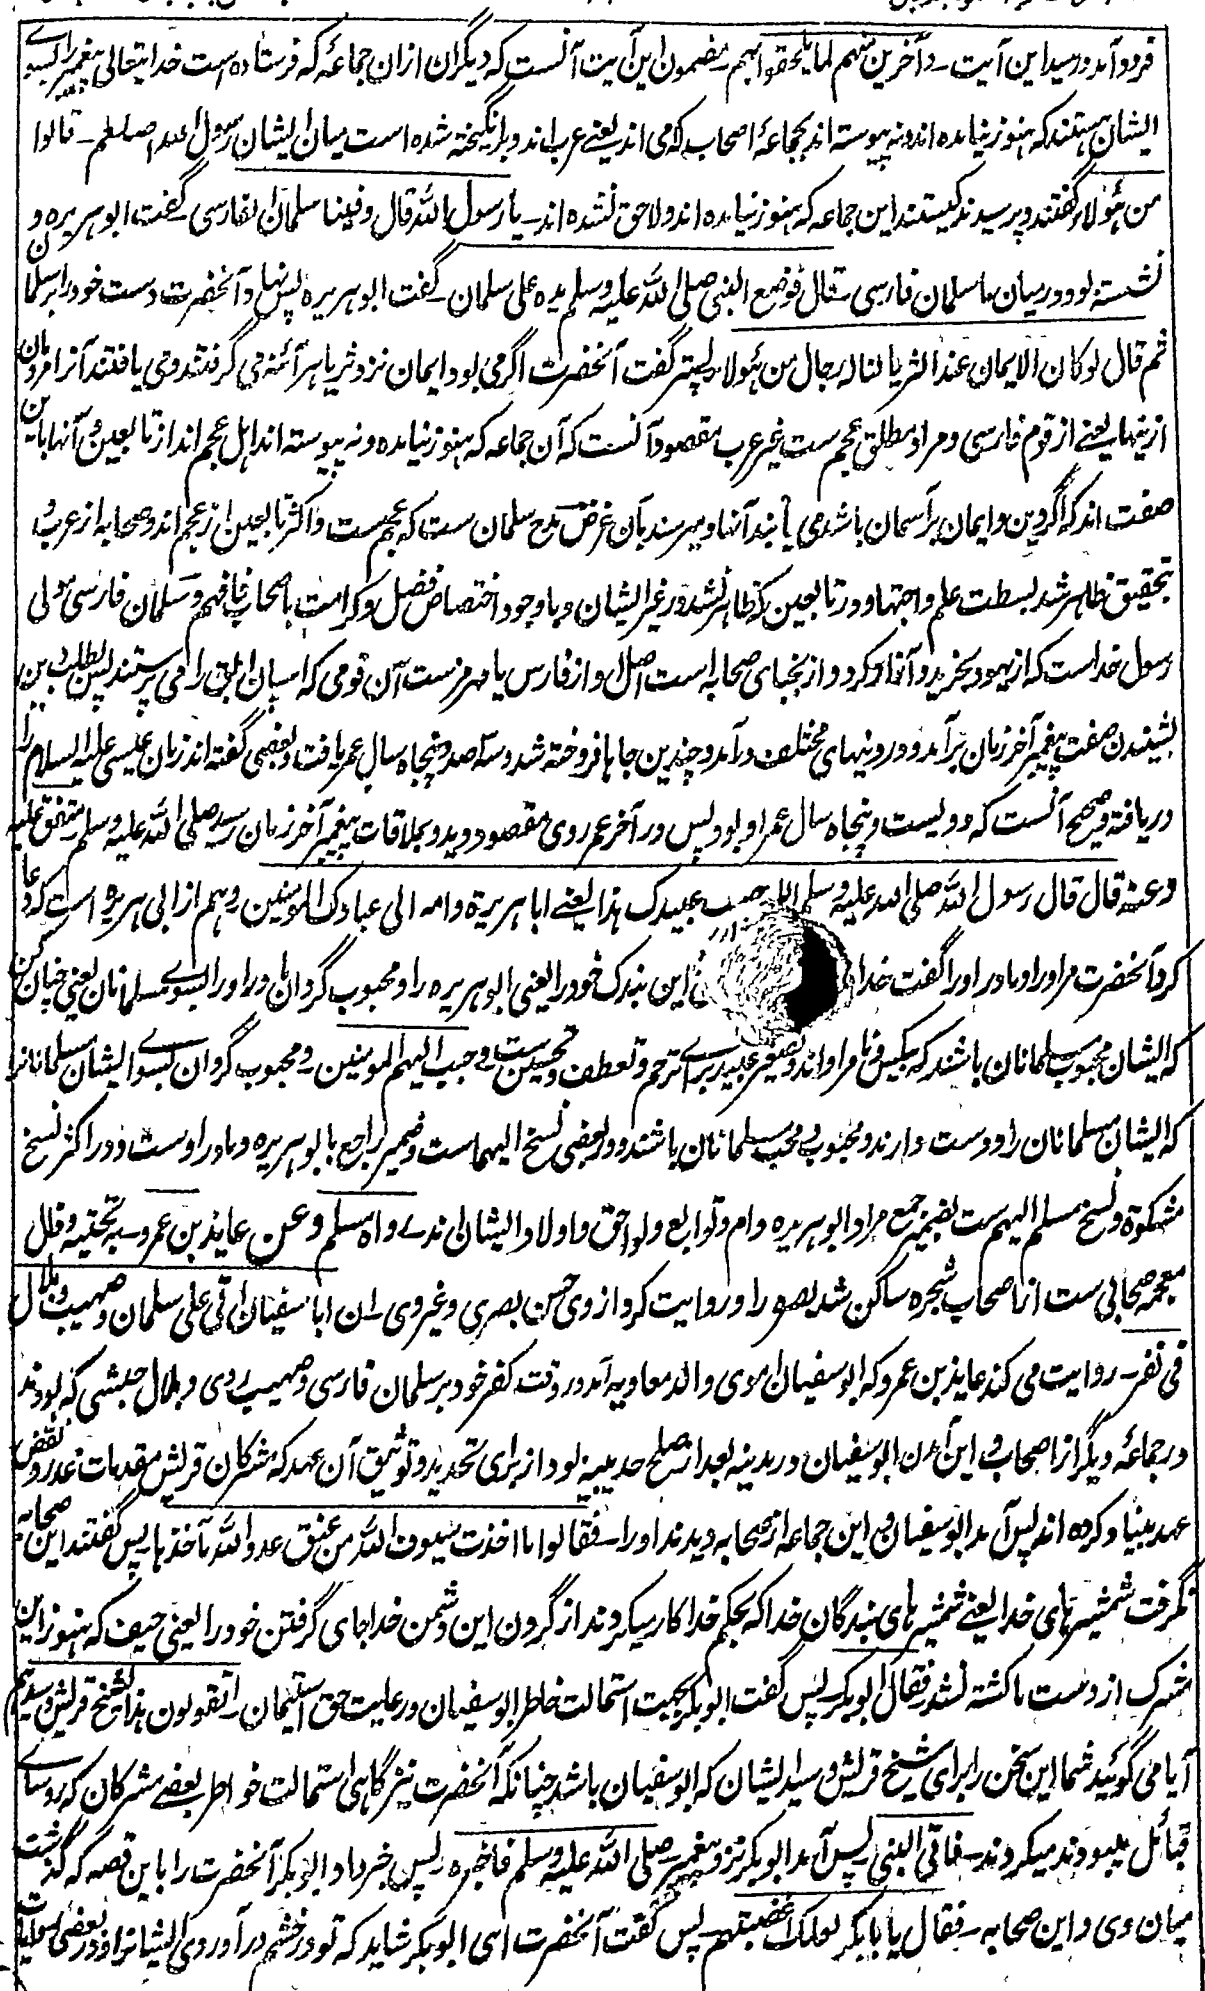 فرود آمد و رسید این آیت ـ وآخرین منهم لما یلحقوا بهم ـ مضمون این آیت آنست که دیگران ازان جماعه که فرستاده است خدایتعالی پیغمبر را بسوے
ایشان هستند که هنوز نیامده اند و نه پیوسته اند بجماعهٔ اصحاب که امی اند یعنے عرب اند و برانگیخته شده است میان ایشان رسول الله صلعم ـ قالوا
من هؤلاء گفتند و پرسیدند کیستند این جماعه که هنوز نیامده اند و لاحق نشده اند ـ یا رسول الله قال وفینا سلمان الفارسی ـ گفت ابو هریره و
نشسته بود در میان ما سلمان فارسی ـ قال فوضع النبی صلی الله علیه وسلم یده علی سلمان ـ گفت ابو هریره پس نهاد آنحضرت دست خود را بر سلمان
ثم قال لو کان الایمان عند الثریا لناله رجال من هؤلاء پستر گفت آنحضرت اگر می بود ایمان نزد ثریا هر آئنه می گرفتند و می یافتند آنرا مردمان
ازینها یعنے از قوم فارسی و مراد مطلق عجم ست غیر عرب مقصود آنست که آن جماعه که هنوز نیامده و نه پیوسته اند اهل عجم اند از تابعین و آنها باین
صفت اند که اگر دین و ایمان بر آسمان باشد می یابند آنها و میرسند بآن غرض مدح سلمان ست که عجم ست و اکثر تابعین از عجم اند و صحابه از عرب و
بتحقیق ظاهر شد بسطت علم و اجتهاد در تابعین که ظاهر نشد در غیر ایشان و با وجود اختصاص فضل و کرامت باصحاب فافهم و سلمان فارسی مولی
رسول خداست که از یهود بخرید و آزاد کرد و از نجبای صحابه است اصل او از فارس یا مهرمزست از قومی که اسپان ابلق را می پرستند پس بطلب دین
بشنیدن صفت پیغمبر آخر زمان برآمد و در دینهای مختلف درآمد و چندین جا با فروخته شد و سه صد و پنجاه سال عمر یافت و بعضی گفته اند زمان عیسی علیه السلام را
دریافته و صحیح آنست که دویست و پنجاه سال عمر او بود پس در آخر عمر روی مقصود دید و بملاقات پیغمبر آخر زمان رسید صلی الله علیه وسلم متفق علیه
وعنه قال قال رسول الله صلی الله علیه وسلم اللهم حبب عبیدک هذا یعنے ابا هریرة وامه الی عبادک المومنین و هم از ابی هریره است که دعا
کرد آنحضرت مر او را و مادر او را گفت خدا این بندک خود را یعنی ابو هریره را و محبوب گردان مادر او را بسوے مسلمانان یعنی چنان کن
که ایشان محبوب مسلمانان باشند که بیکس و نامراد اند و تصغیر عبید برائے ترحم و تعطف و تحسین ست و حبب الیهم المومنین و محبوب گردان بسوے ایشان مسلمانانرا
که ایشان مسلمانان را دوست دارند و محبوب و محب مسلمانان باشند و در بعضی نسخ الیهماست و ضمیر راجع بابو هریره و مادر اوست و در اکثر نسخ
مشکوة و نسخ مسلم الیهم ست بضمیر جمع مراد ابو هریره و ام و توابع و لواحق و اولاد ایشان اند ـ رواه مسلم وعن عایذ بن عمرو ـ به تحتیه و ذال
معجمه صحابی ست از اصحاب شجره ساکن شد بصره را و روایت کرد از وی حسن بصری و غیر وی ـ ان ابا سفیان اتی علی سلمان وصهیب وبلال
فی نفر ـ روایت می کند عایذ بن عمرو که ابو سفیان اموی والد معاویه آمد در وقت کفر خود بر سلمان فارسی و صهیب رومی و بلال حبشی که بودند
در جماعهٔ دیگر از اصحاب و این آمدن ابو سفیان در مدینه بعد از صلح حدیبیه بود از برای تجدید و توثیق آن عهد که مشرکان قریش مقدمات غدر و نقض
عهد بنیاد کرده اند پس آمد ابو سفیان و این جماعه از صحابه دیدند او را ـ فقالوا ما اخذت سیوف الله من عنق عدو الله مأخذها پس گفتند این صحابه
نگرفت شمشیرهای خدا یعنے شمشیرهای بندگان خدا که بحکم خدا کار میکردند از گردن این دشمن خدا جای گرفتن خود را یعنی حیف که هنوز این
مشرک از دست ما کشته نشد ـ فقال ابو بکر ـ پس گفت ابو بکر بجهت استمالت خاطر ابو سفیان و رعایت حق استیمان ـ اتقولون هذا لشیخ قریش وسیدهم
آیا می گوئید شما این سخن را برای شیخ قریش و سید ایشان که ابو سفیان باشد چنانکه آنحضرت نیز گاهی استمالت خواطر بعضے مشرکان که روساے
قبائل بودند میکردند ـ فاتی النبی ـ پس آمد ابو بکر نزد پیغمبر ـ صلی الله علیه وسلم فاخبره ـ پس خبر داد ابو بکر آنحضرت را باین قصه که گذشت
میان وی و این صحابه ـ فقال یا ابا بکر لعلک اغضبتهم ـ پس گفت آنحضرت ای ابو بکر شاید که تو در خشم در آوردی ایشانرا و در بعضی